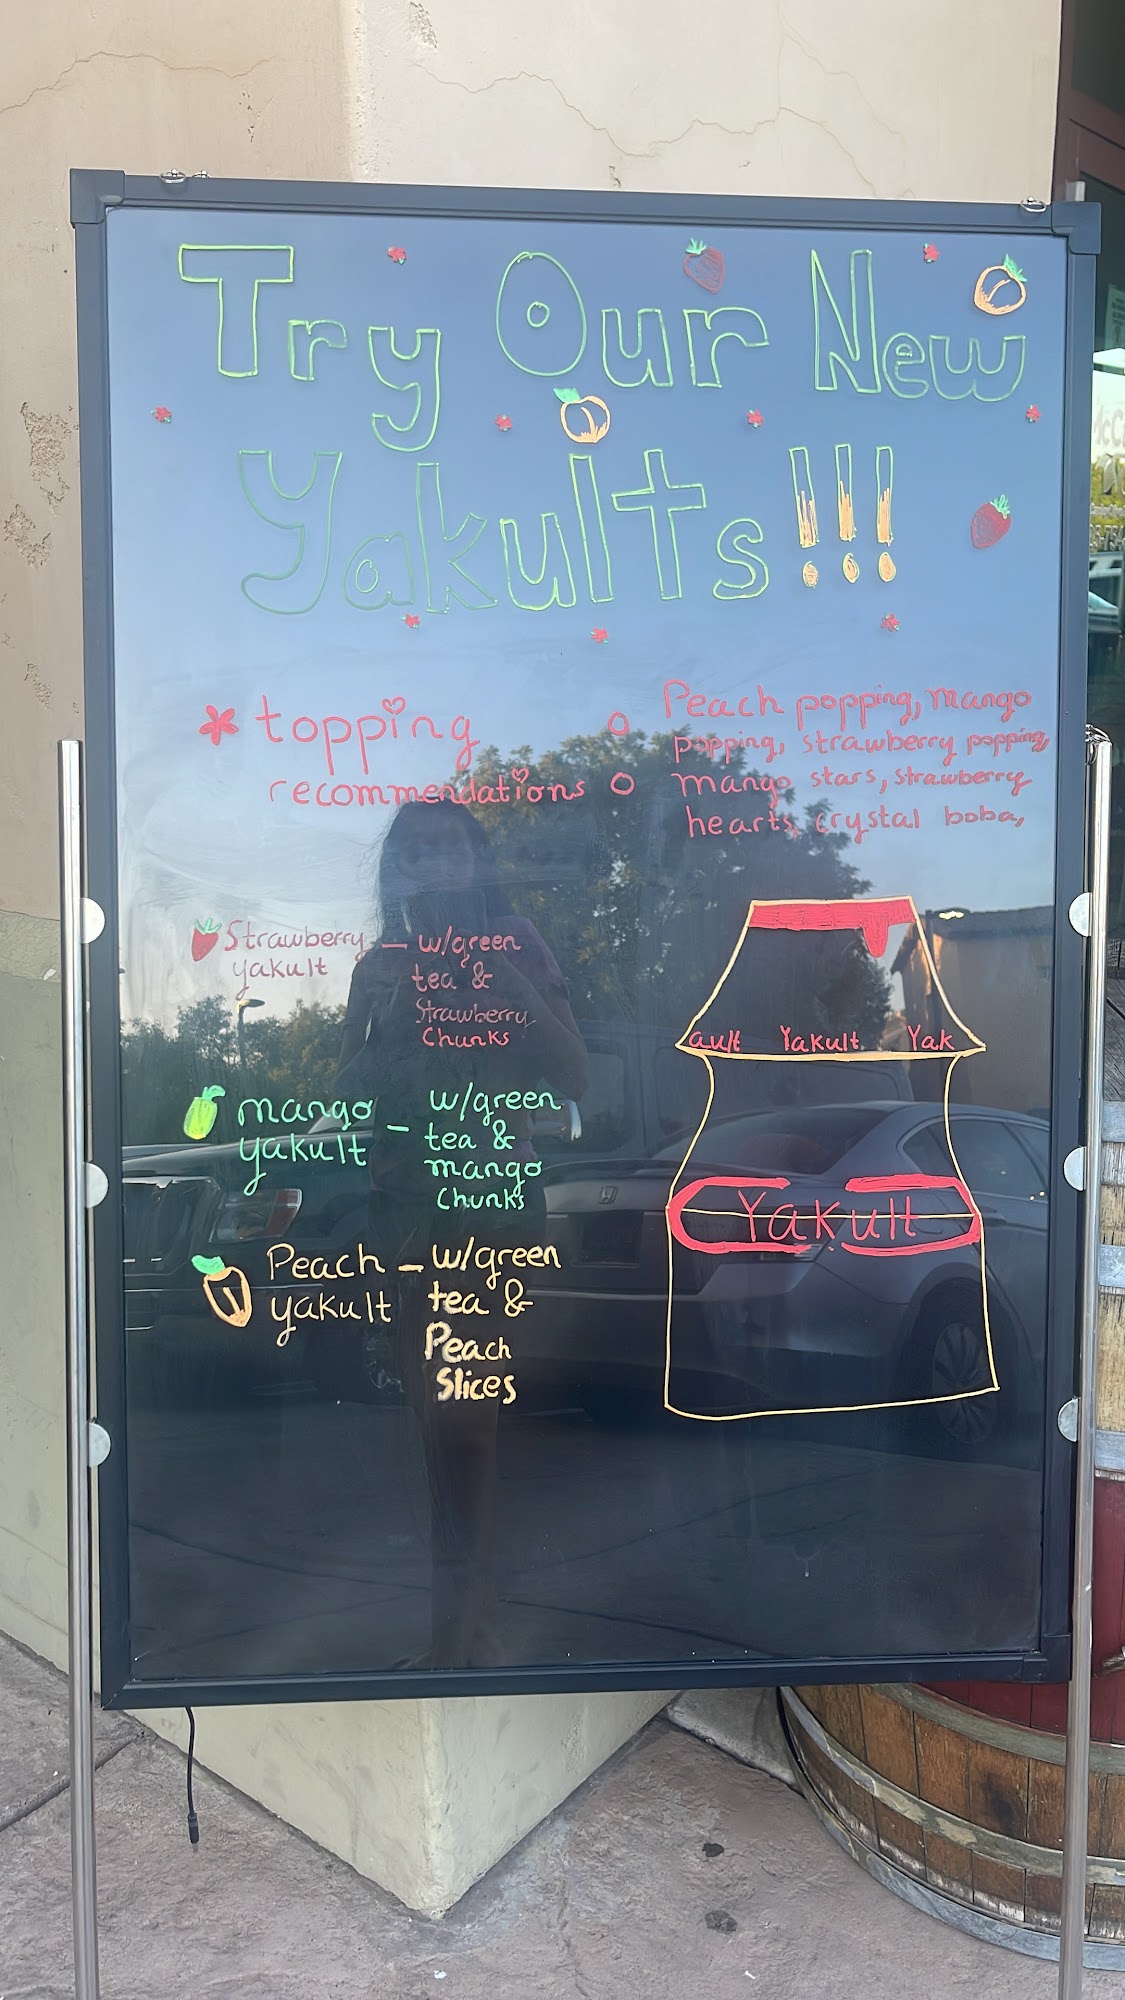 Try Our New
Yakults!!!
* topping
recommendations
Peach popping, mango
popping, strawberry popping,
mango stars, strawberry
hearts, crystal boba,
Strawberry
yakult
— w/green
tea &
Strawberry
Chunks
mango
yakult
— w/green
tea &
mango
Chunks
Peach
yakult
— w/green
tea &
Peach
Slices
ault Yakult Yak
Yakult